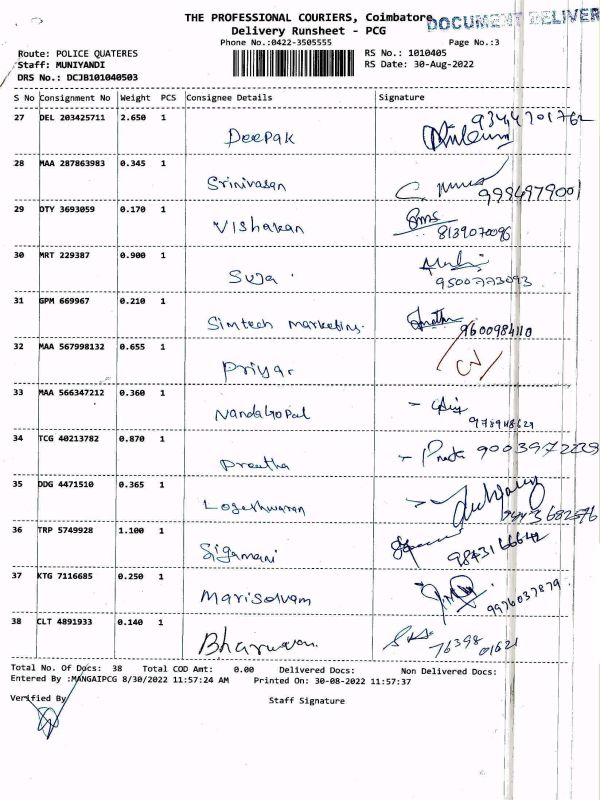 THE PROFESSIONAL COURIERS, Coimbatore
DOCUMENT DELIVER
Delivery Runsheet - PCG
Phone No.:0422-3505555 Page No.:3
Route: POLICE QUATERES RS No.: 1010405
Staff: MUNIYANDI RS Date: 30-Aug-2022
DRS No.: DCJB101040503
S No Consignment No Weight PCS Consignee Details Signature
27 DEL 203425711 2.650 1 Deepak 9344701762
28 MAA 287863983 0.345 1 Srinivasan 9994979001
29 DTY 3693059 0.170 1 Vishakan 8139070096
30 MRT 229387 0.900 1 Suja 9500773093
31 GPM 669967 0.210 1 Simtech marketing. 9600984110
32 MAA 567998132 0.655 1 Priya.
33 MAA 566347212 0.360 1 NandaGopal
34 TCG 40213782 0.870 1 Preetha 9003972239
35 DDG 4471510 0.365 1 Logeshwaran 9443682576
36 TRP 5749928 1.100 1 Sigamani
37 KTG 7116685 0.250 1 Mariselvam 9976037879.
38 CLT 4891933 0.140 1 76398 01621
Total No. Of Docs: 38 Total COD Amt: 0.00 Delivered Docs: Non Delivered Docs:
Entered By :MANGAIPCG 8/30/2022 11:57:24 AM Printed On: 30-08-2022 11:57:37
Verified By Staff Signature